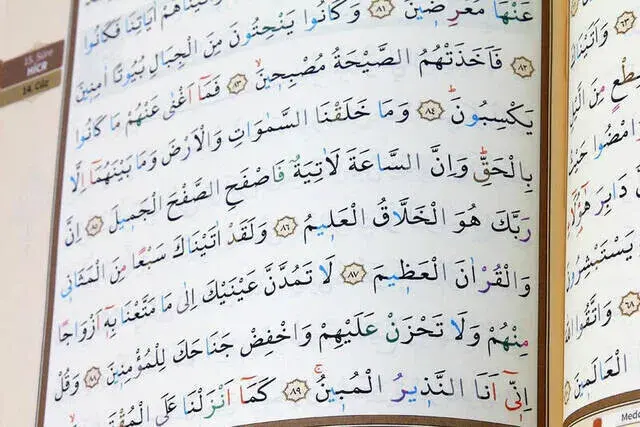 15. Sûre
HİCR
14. Cüz
اٰيَاتِنَا فَكَانُوا
عَنْهَا مُعْرِضٖينَ ٨١ وَكَانُوا يَنْحِتُونَ مِنَ الْجِبَالِ بُيُوتًا اٰمِنٖينَ
٨٢ فَاَخَذَتْهُمُ الصَّيْحَةُ مُصْبِحٖينَۙ ٨٣ فَمَٓا اَغْنٰى عَنْهُمْ مَا كَانُوا
يَكْسِبُونَؕ ٨٤ وَمَا خَلَقْنَا السَّمٰوَاتِ وَالْاَرْضَ وَمَا بَيْنَهُمَٓا اِلَّا
بِالْحَقِّؕ وَاِنَّ السَّاعَةَ لَاٰتِيَةٌ فَاصْفَحِ الصَّفْحَ الْجَمٖيلَ ٨٥ اِنَّ
رَبَّكَ هُوَ الْخَلَّاقُ الْعَلٖيمُ ٨٦ وَلَقَدْ اٰتَيْنَاكَ سَبْعًا مِنَ الْمَثَانٖى
وَالْقُرْاٰنَ الْعَظٖيمَ ٨٧ لَا تَمُدَّنَّ عَيْنَيْكَ اِلٰى مَا مَتَّعْنَا بِهٖٓ اَزْوَاجًا
مِنْهُمْ وَلَا تَحْزَنْ عَلَيْهِمْ وَاخْفِضْ جَنَاحَكَ لِلْمُؤْمِنٖينَ ٨٨ وَقُلْ
اِنّٖٓى اَنَا النَّذٖيرُ الْمُبٖينُۚ ٨٩ كَمَٓا اَنْزَلْنَا عَلَى
٦٣ وَاَتَيْنَاكَ
مِنَ الَّيْلِ
وَامْضُوا حَيْثُ
دَابِرَ هٰٓؤُ۬لَٓاءِ
٦٨ وَاتَّقُوا
الْعَالَمٖينَ